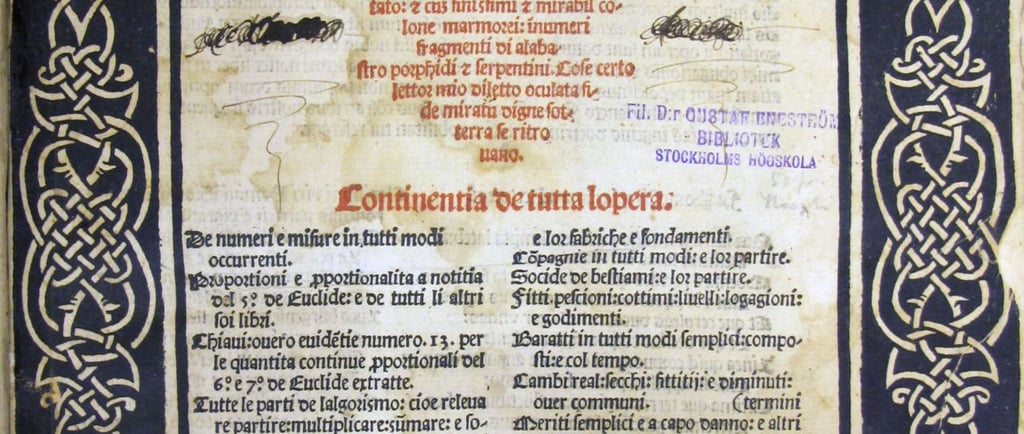 tato: ⁊ cus finissimi ⁊ mirabil co-
lone marmorei: inumeri
fragmenti di alaba-
stro porphidi ⁊ serpentini. Cose certo
lettor mio diletto oculata fi-
de miratu digne sot-
terra se ritro
uano.
Fil. D:r GUSTAF ENESTRÖM
BIBLIOTEK
STOCKHOLMS HÖGSKOLA
Continentia de tutta lopera.
De numeri e misure in tutti modi
occurrenti.
Proportioni e ꝓportionalita a notitia
del 5º de Euclide: e de tutti li altri
soi libri.
Chiaui: ouero euidẽtie numero. 13. per
le quantita continue ꝓportionali del
6º e 7º de Euclide extratte.
Tutte le parti de lalgorismo: cioe releua
re partire: multiplicare: sũmare: e so-
e lor fabriche e fondamenti.
Cõpagnie in tutti modi: e lor partire.
Socide de bestiami: e lor partire.
Fitti: pescioni: cottimi: liuelli: logagioni:
e godimenti.
Baratti in tutti modi semplici: compo-
sti: e col tempo.
Cambi real: secchi: fittitij: e diminuti:
ouer communi. (termini
Meriti semplici e a capo danno: e altri